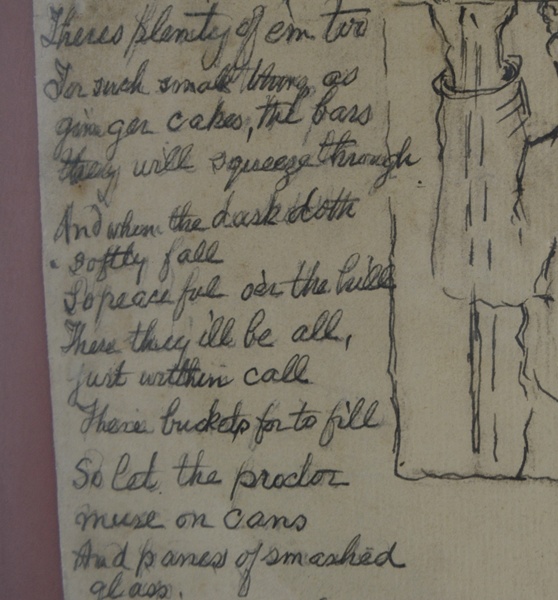 Theres plenity of em too
For such small things as
ginger cakes, the bars
they will squeeze through
And when the dusk doth
softly fall
So peaceful o'er the hill
There they ill be all,
just within call
There buckets for to fill
So let the proctor
muse on cans
And panes of smashed
glass.